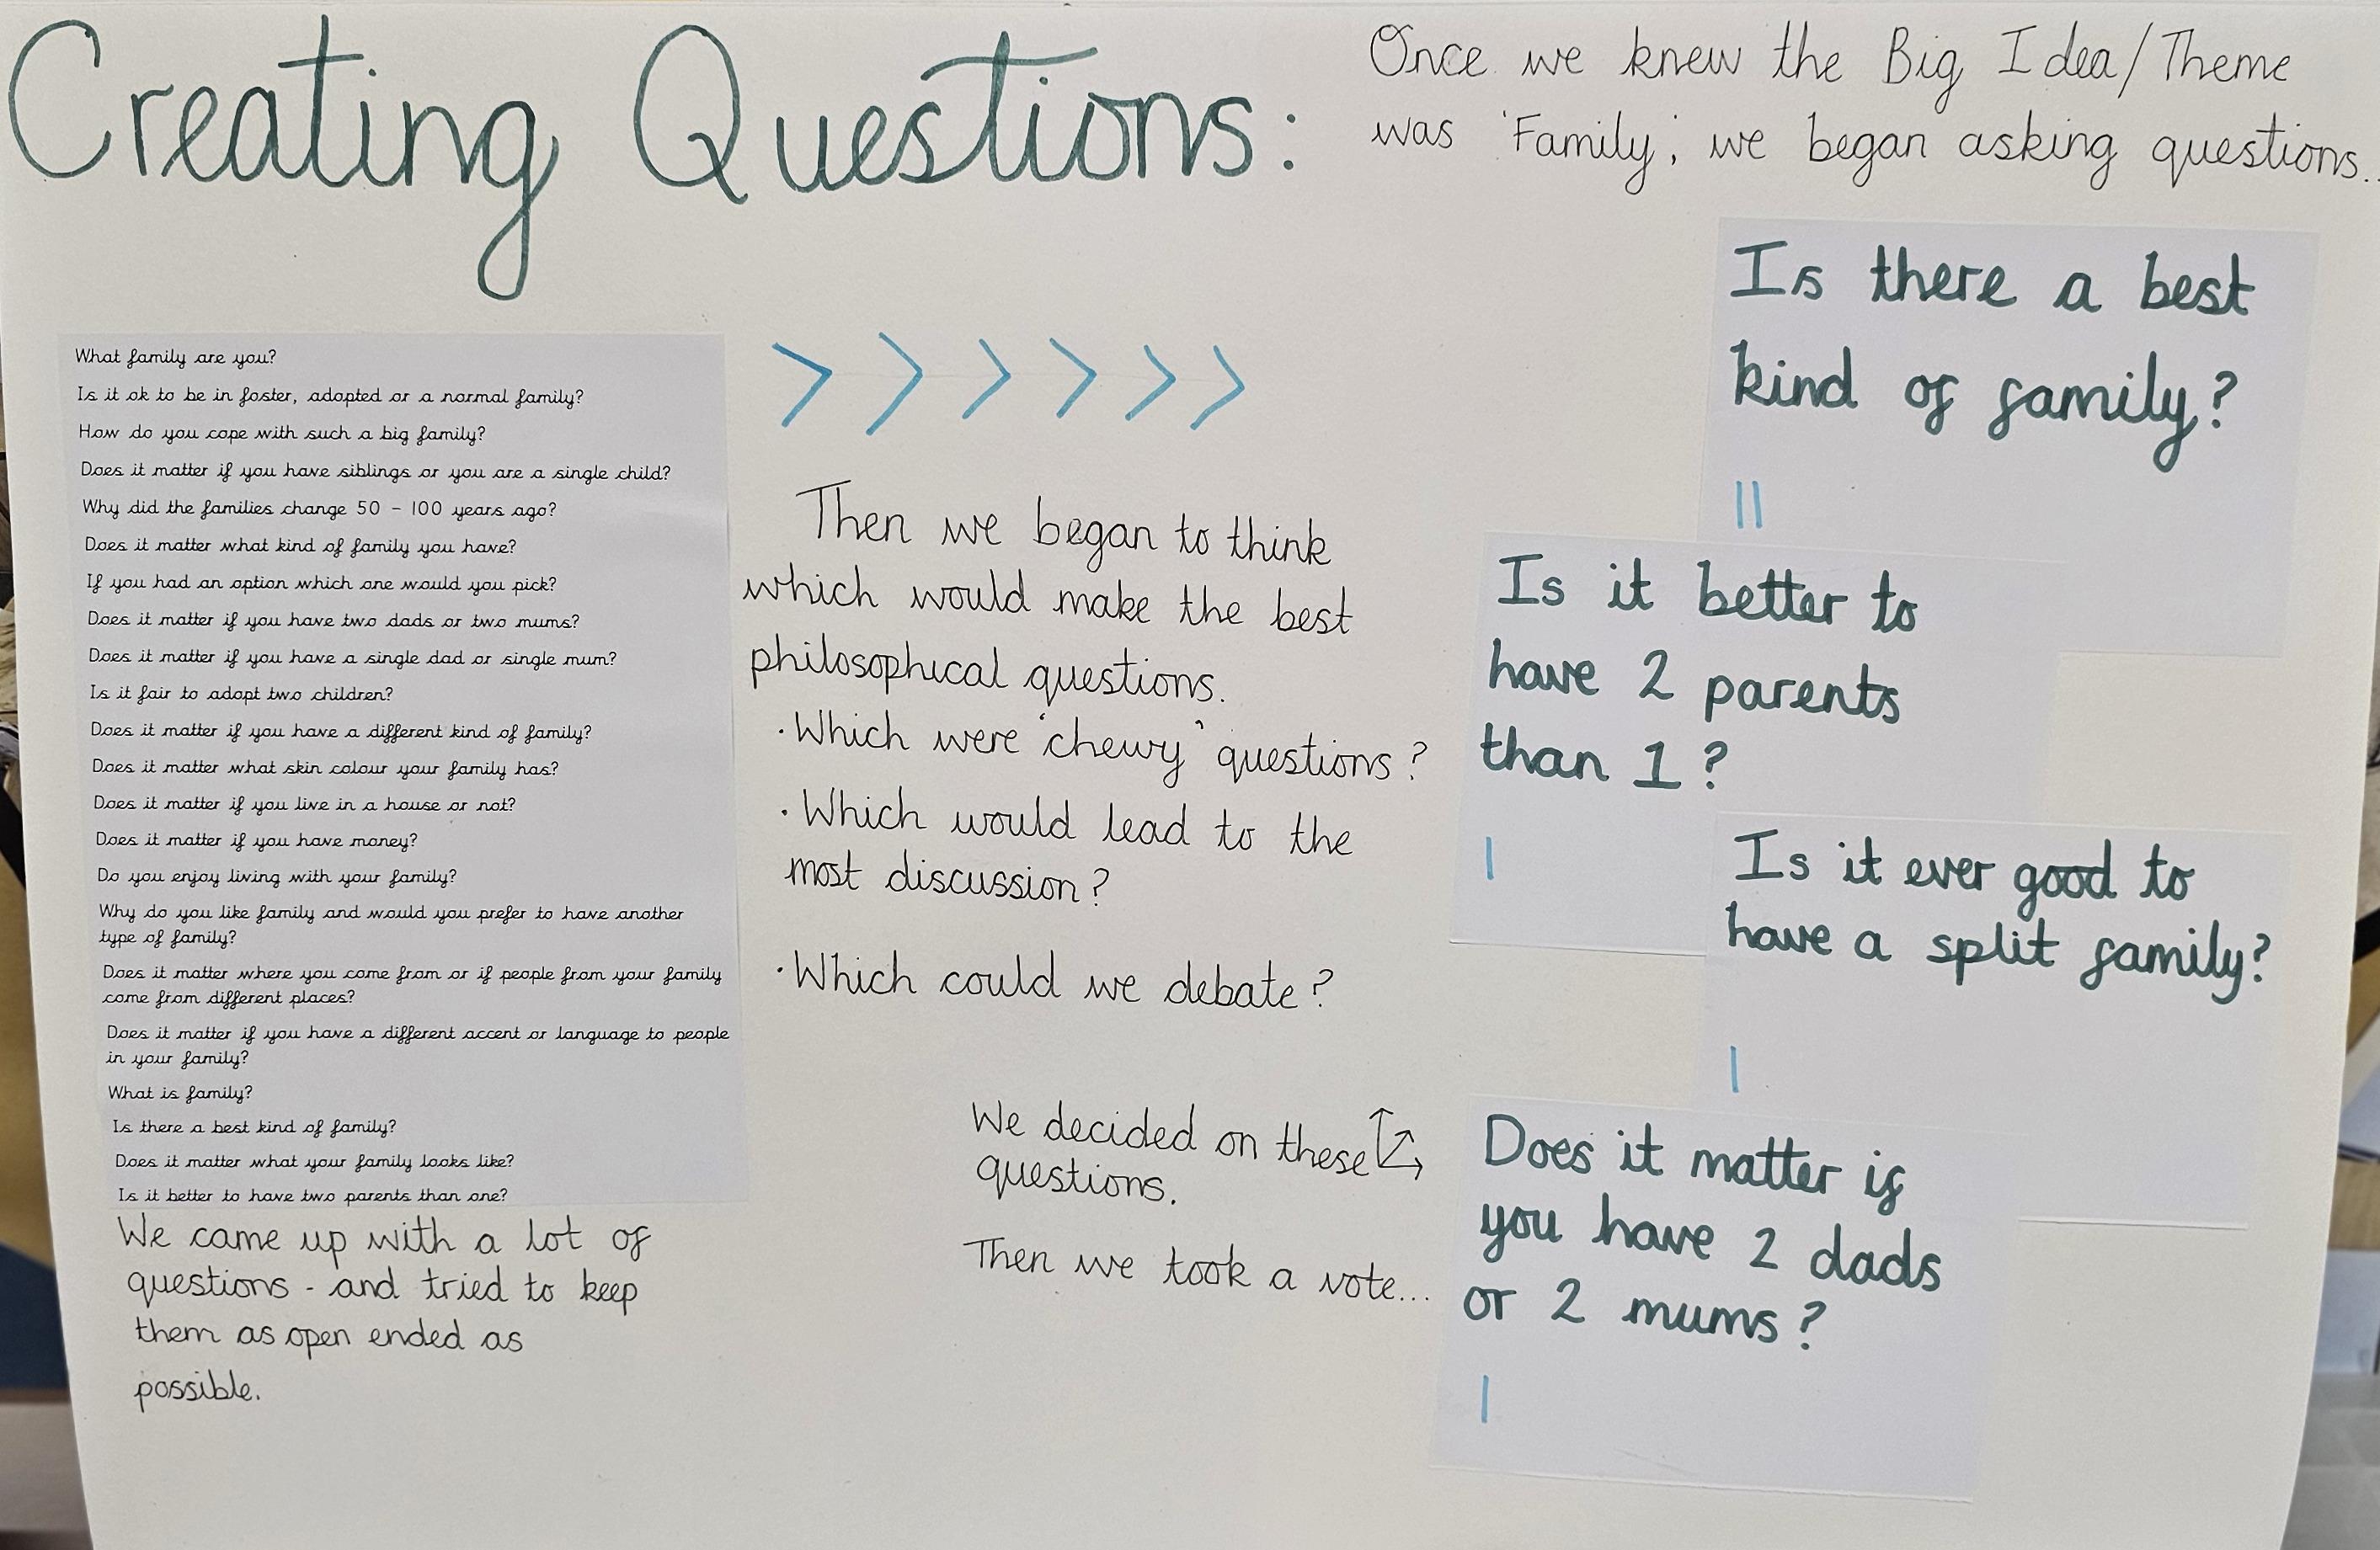 Creating Questions:
Once we knew the Big Idea/Theme
was 'Family', we began asking questions...
What family are you?
Is it ok to be in foster, adopted or a normal family?
How do you cope with such a big family?
Does it matter if you have siblings or you are a single child?
Why did the families change 50 - 100 years ago?
Does it matter what kind of family you have?
If you had an option which one would you pick?
Does it matter if you have two dads or two mums?
Does it matter if you have a single dad or single mum?
Is it fair to adopt two children?
Does it matter if you have a different kind of family?
Does it matter what skin colour your family has?
Does it matter if you live in a house or not?
Does it matter if you have money?
Do you enjoy living with your family?
Why do you like family and would you prefer to have another
type of family?
Does it matter where you come from or if people from your family
come from different places?
Does it matter if you have a different accent or language to people
in your family?
What is family?
Is there a best kind of family?
Does it matter what your family looks like?
Is it better to have two parents than one?
We came up with a lot of
questions - and tried to keep
them as open ended as
possible.
Then we began to think
which would make the best
philosophical questions.
· Which were 'chewy' questions?
· Which would lead to the
most discussion?
· Which could we debate?
We decided on these
questions.
Then we took a vote...
Is there a best
kind of family?
Is it better to
have 2 parents
than 1?
Is it ever good to
have a split family?
Does it matter if
you have 2 dads
or 2 mums?